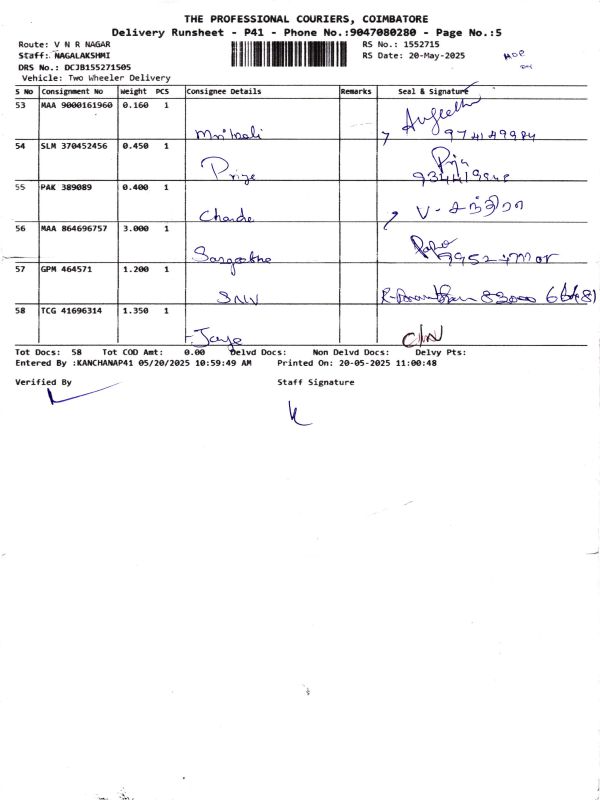 THE PROFESSIONAL COURIERS, COIMBATORE
Delivery Runsheet - P41 - Phone No.:9047080280 - Page No.:5
Route: V N R NAGAR RS No.: 1552715
Staff: NAGALAKSHMI RS Date: 20-May-2025
DRS No.: DCJB155271505
Vehicle: Two Wheeler Delivery
S No Consignment No Weight PCS Consignee Details Remarks Seal & Signature
53 MAA 9000161960 0.160 1
54 SLM 370452456 0.450 1
Priya
55 PAK 389089 0.400 1
V - சந்திரா
56 MAA 864696757 3.000 1
57 GPM 464571 1.200 1
SNV
58 TCG 41696314 1.350 1
Jaye
Tot Docs: 58 Tot COD Amt: 0.00 Delvd Docs: Non Delvd Docs: Delvy Pts:
Entered By :KANCHANAP41 05/20/2025 10:59:49 AM Printed On: 20-05-2025 11:00:48
Verified By Staff Signature